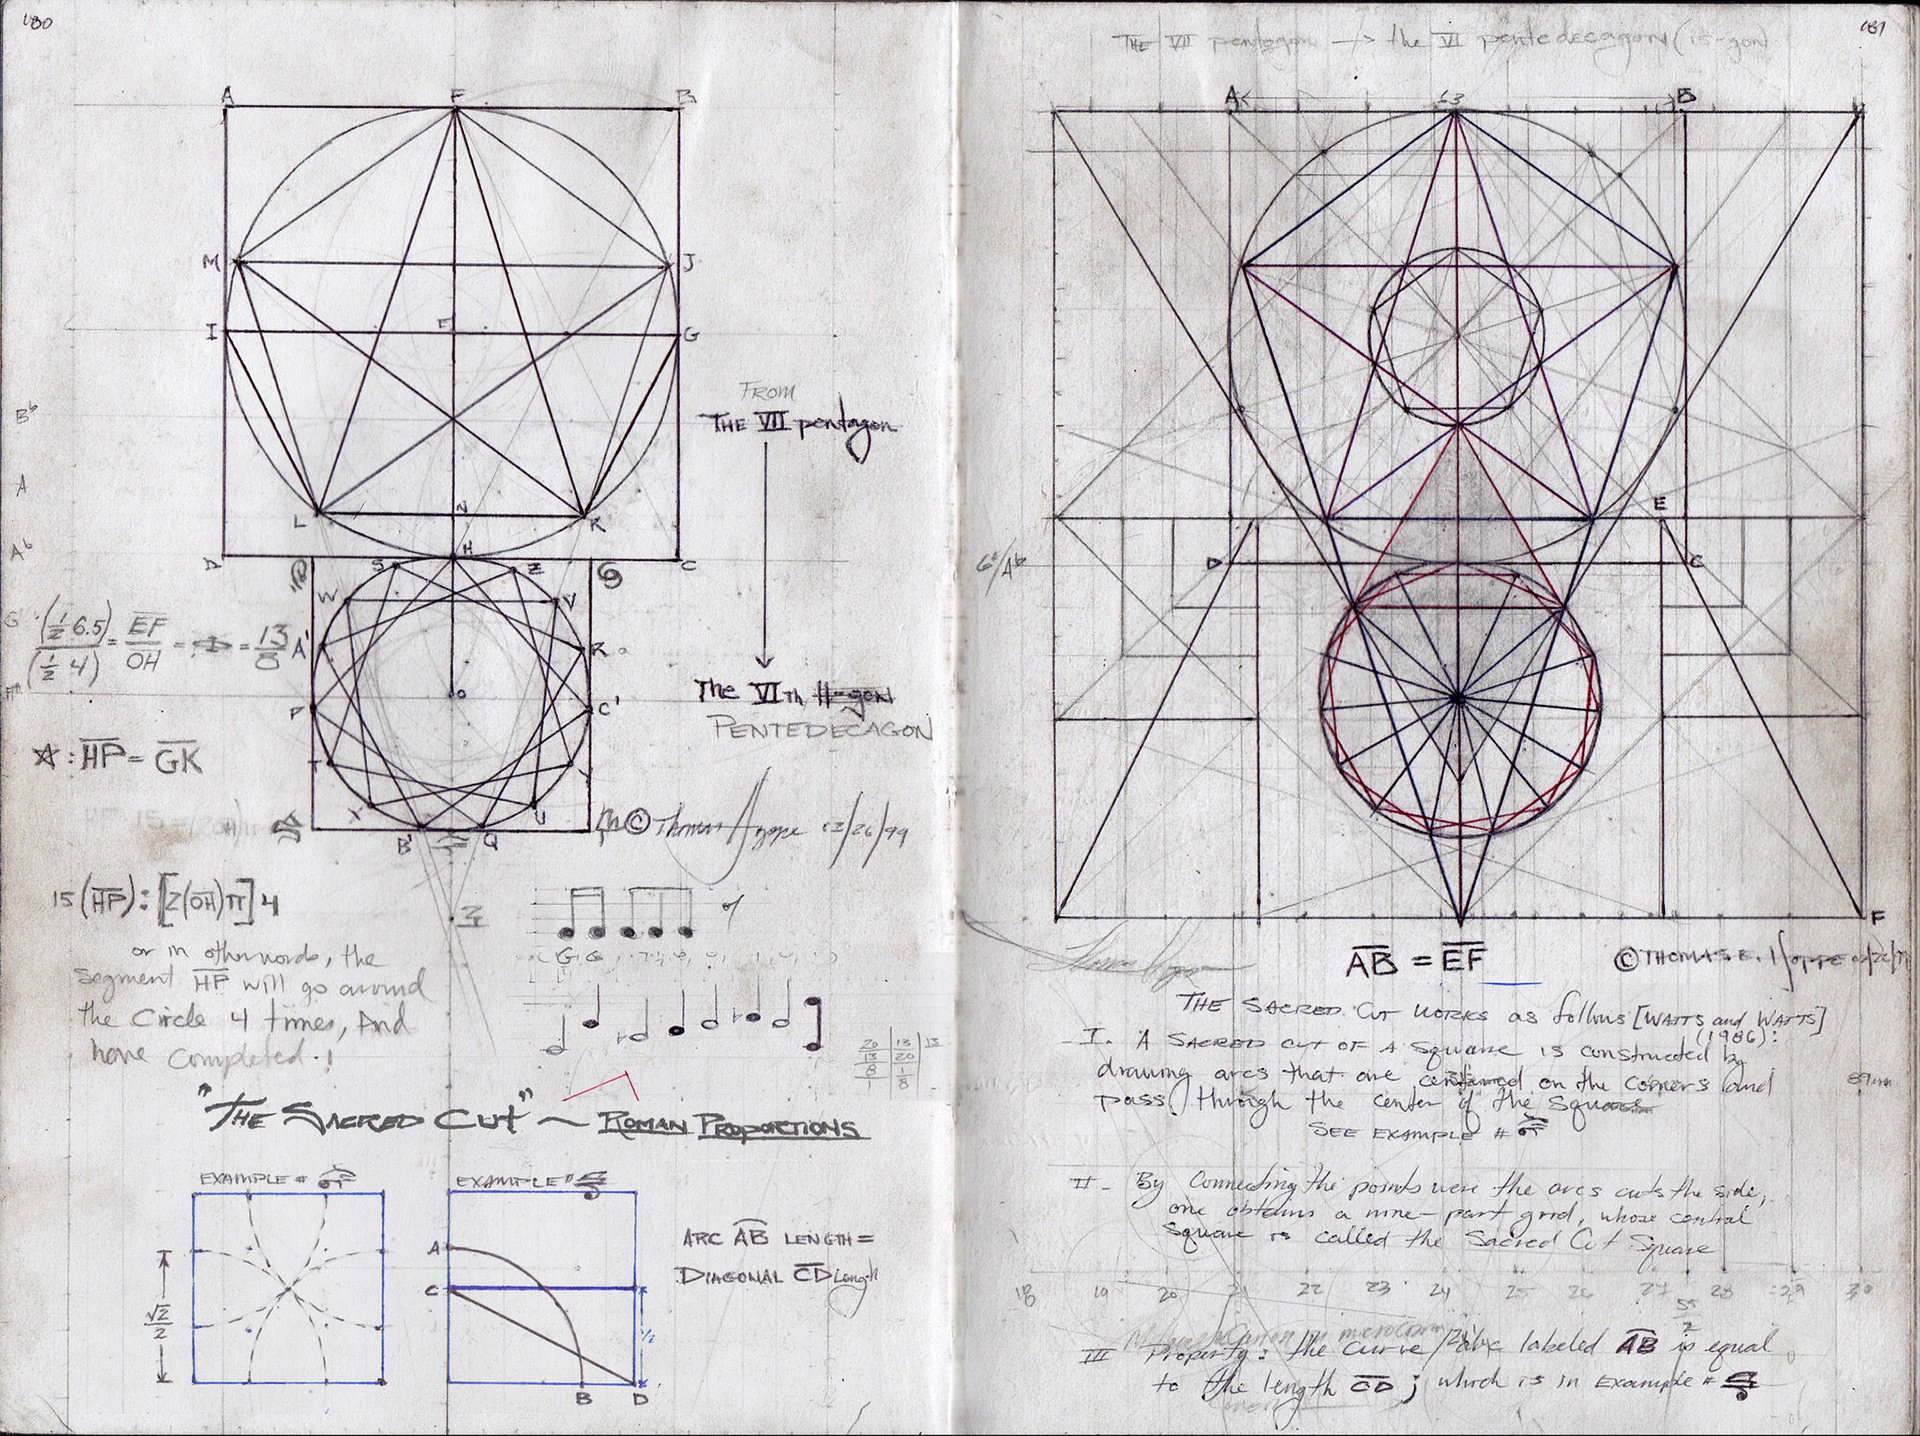 180
A F B
M J
I E G
B♭
A
A♭
L N K
D H C
S Z
W V
A' R
P C'
T Y
X U
B' Q
FROM
THE VII pentagon
The VITH H-gon
PENTEDECAGON
(½ 6.5) / (½ 4) = EF / OH = Φ = 13/8
☆: HP = GK
© Thomas Hoppe 12/26/99
15(HP): [2(OH)π]4
or in other words, the
segment HP will go around
the circle 4 times, And
have completed!
20 13 13
13 20
8 1
1 8
"THE SACRED CUT" ~ ROMAN PROPORTIONS
EXAMPLE #
√2/2
EXAMPLE #
A
C
½
B D
ARC AB LENGTH =
DIAGONAL CD Length
181
THE VII pentagon → the VI pentedecagon (15-gon)
A B
E
D C
6°/A♭
F
AB = EF
© THOMAS E. HOPPE
THE SACRED CUT WORKS as follows [WATTS and WATTS]
(1986):
I. A SACRED CUT OF A Square is constructed by
drawing arcs that are centered on the corners and
pass through the center of the Square
SEE EXAMPLE #
II - By Connecting the points were the arcs cuts the side,
one obtains a nine-part grid, whose central
square is called the Sacred Cut Square
18 19 20 21 22 23 24 25 26 27 28 29 30
55/2
III Property: the Curve / arc labeled AB is equal
to the length CD; which is in Example #